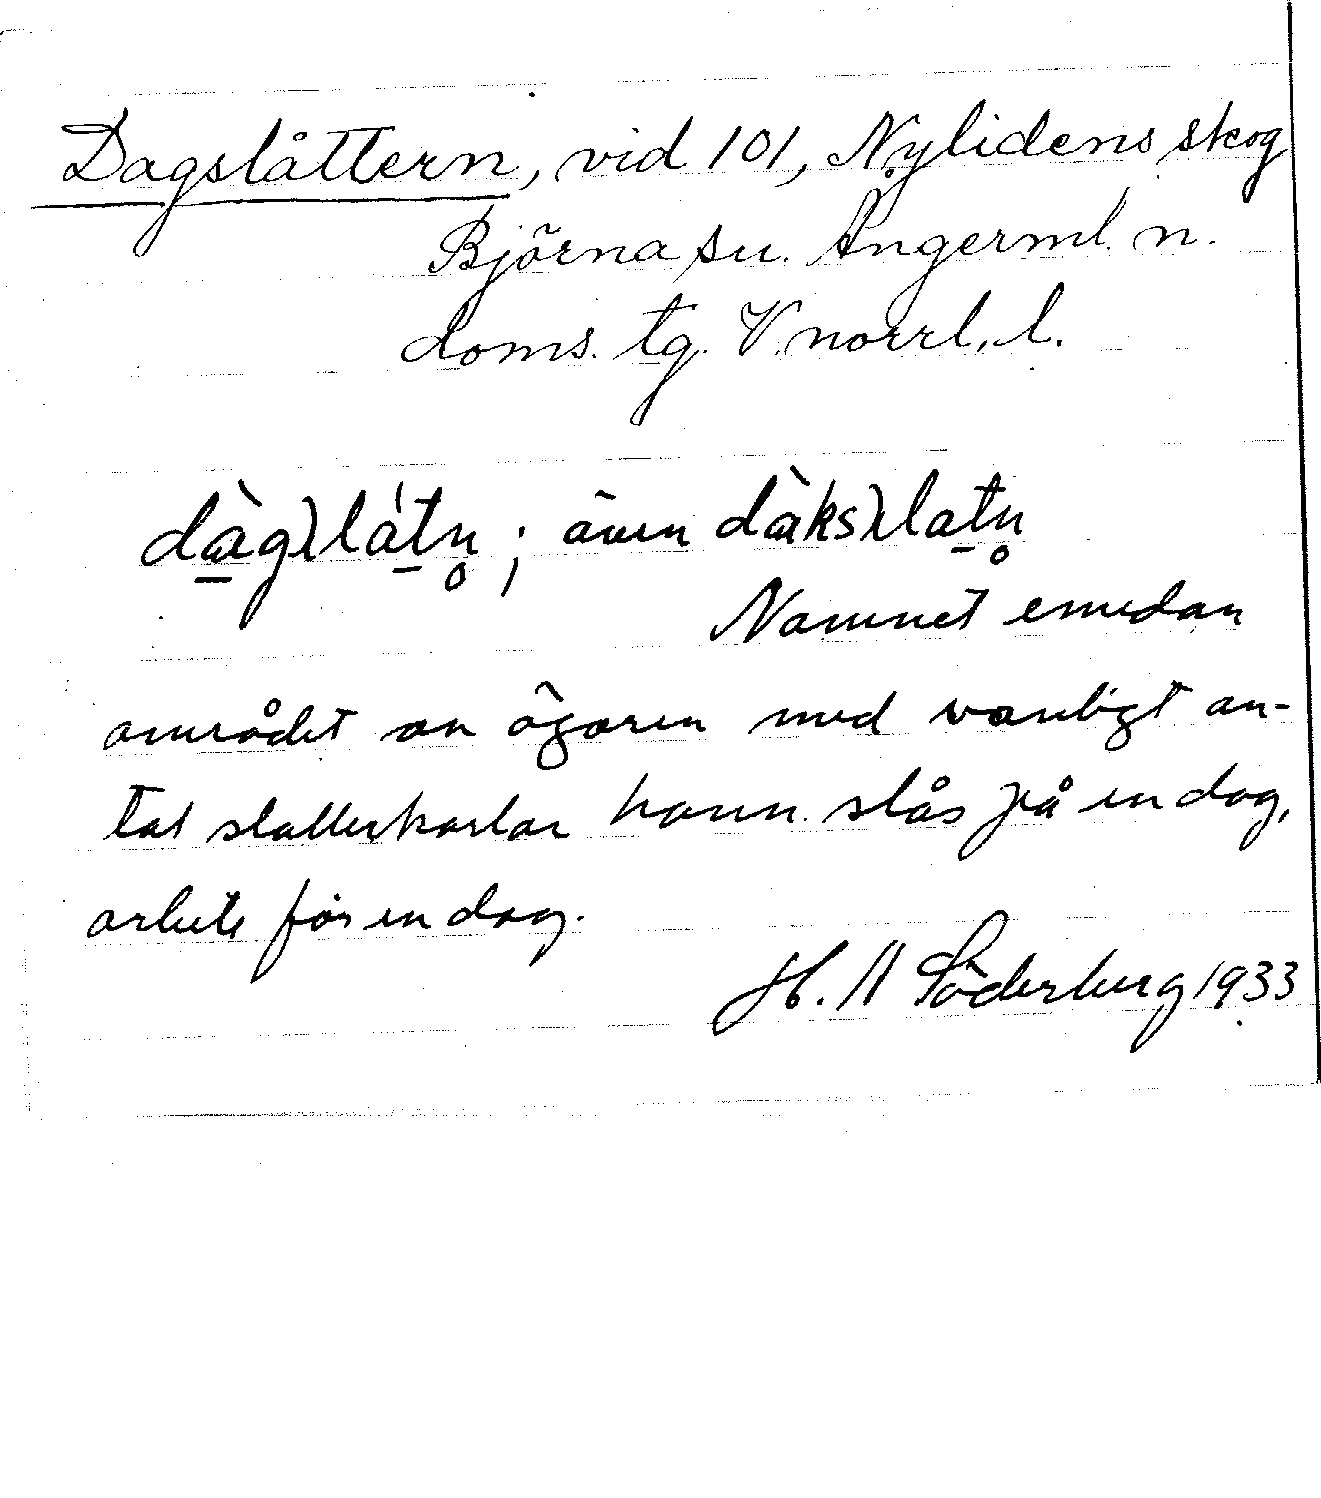 Dagslåttern, vid 101, Nylidens skog
Björna sn. Ångerml. n.
doms. tg. V.norrl. l.
även
Namnet emedan
området av ägaren med vanligt an-
tal slåtterkarlar hann slås på en dag,
arbete för en dag.
H. A Söderberg 1933